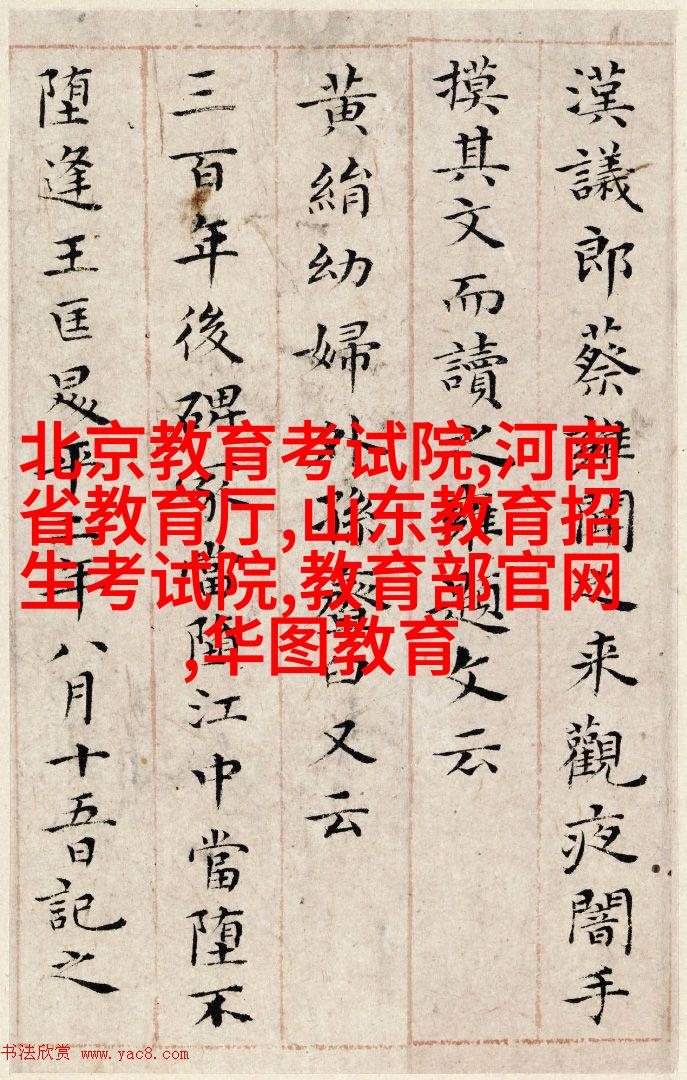 漢議郎蔡雍聞之来觀夜闇手
摸其文而讀之雍題文云
黄絹幼婦外孫臼又云
三百年後碑冢當堕江中當堕不
堕逢王匡昇平二年八月十五日記之
北京教育考试院,河南
省教育厅,山东教育招
生考试院,教育部官网
,华图教育
书法欣赏 www.yac8.com